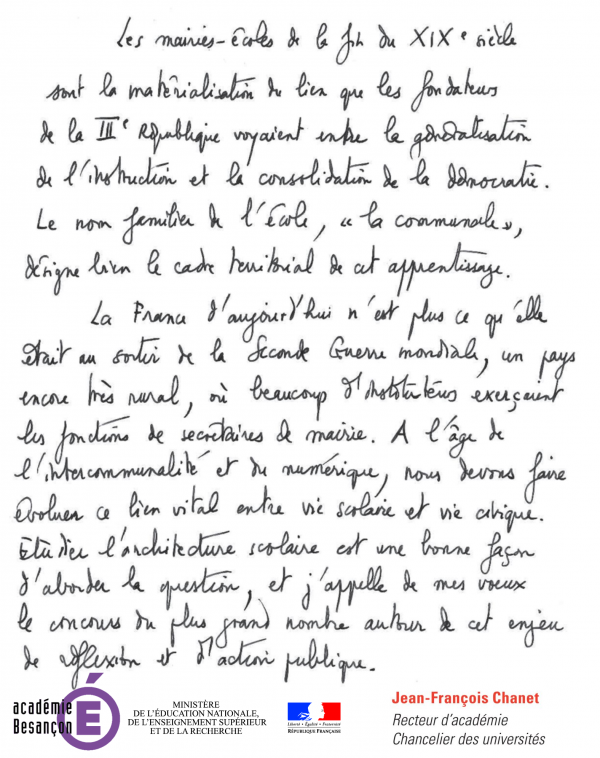 Les mairies-écoles de la fin du XIXe siècle
sont la matérialisation du lien que les fondateurs
de la IIIe République voyaient entre la généralisation
de l'instruction et la consolidation de la démocratie.
Le nom familier de l'école, « la communale »,
désigne bien le cadre territorial de cet apprentissage.
La France d'aujourd'hui n'est plus ce qu'elle
était au sortir de la Seconde Guerre mondiale, un pays
encore très rural, où beaucoup d'instituteurs exerçaient
les fonctions de secrétaires de mairie. A l'âge de
l'intercommunalité et du numérique, nous devons faire
évoluer ce lien vital entre vie scolaire et vie civique.
Etudier l'architecture scolaire est une bonne façon
d'aborder la question, et j'appelle de mes voeux
le concours du plus grand nombre autour de cet enjeu
de réflexion et d'action publique.
académie
Besançon
É
MINISTÈRE
DE L'ÉDUCATION NATIONALE,
DE L'ENSEIGNEMENT SUPÉRIEUR
ET DE LA RECHERCHE
Liberté • Égalité • Fraternité
RÉPUBLIQUE FRANÇAISE
Jean-François Chanet
Recteur d'académie
Chancelier des universités